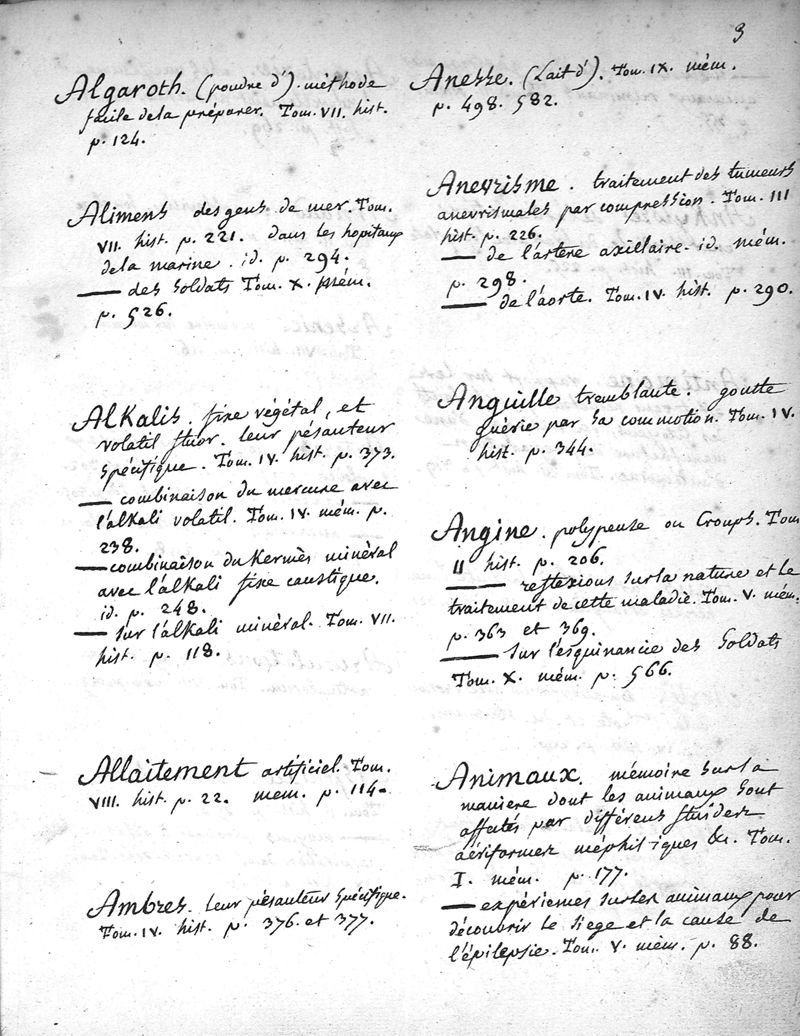 3
Algaroth. (poudre d'). méthode
facile dela préparer. Tom. VII. hist.
p. 124.
Alimens des gens de mer. Tom.
VII. hist. p. 221. dans les hopitaux
dela marine. id. p. 294.
— des Soldats Tom. X. mém.
p. 526.
Alkalis. fixe végétal, et
volatil fluor. leur pésauteur
Spécifique. Tom. IV. hist. p. 373.
— combinaison du mercure avec
l'alkali volatil. Tom. IV. mém. p.
238.
— combinaison du Kermès minéral
avec l'alkali fixe caustique.
id. p. 248.
— sur l'alkali minéral. Tom. VII.
hist. p. 118.
Allaitement artificiel. Tom.
VIII. hist. p. 22. mem. p. 114.
Ambres. leur pésauteur Spécifique.
Tom. IV. hist. p. 376. et 377.
Anesse. (Lait d'). Tom. IX. mém.
p. 498. 582.
Anevrisme. traitement des tumeurs
anevrismales par compression. Tom. III
hist. p. 226.
— de l'artere axillaire. id. mém.
p. 298.
— de l'aorte. Tom. IV. hist. p. 290.
Anguille tremblante. goutte
guérie par sa commotion. Tom. IV.
hist. p. 344.
Angine. polypeuse ou Croups. Tom
II hist. p. 206.
— reflexions sur la nature et le
traitement de cette maladie. Tom. V. mém.
p. 363 et 369.
— Sur l'esquinancie des Soldats
Tom. X. mém. p. 566.
Animaux. mémoire sur la
maniere dont les animaux sont
affectés par différens fluides
aériformes méphitiques &c. Tom.
I. mém. p. 177.
— expériences sur les animaux pour
découvrir le siege et la cause de
l'épilepsie. Tom. V. mém. p. 88.